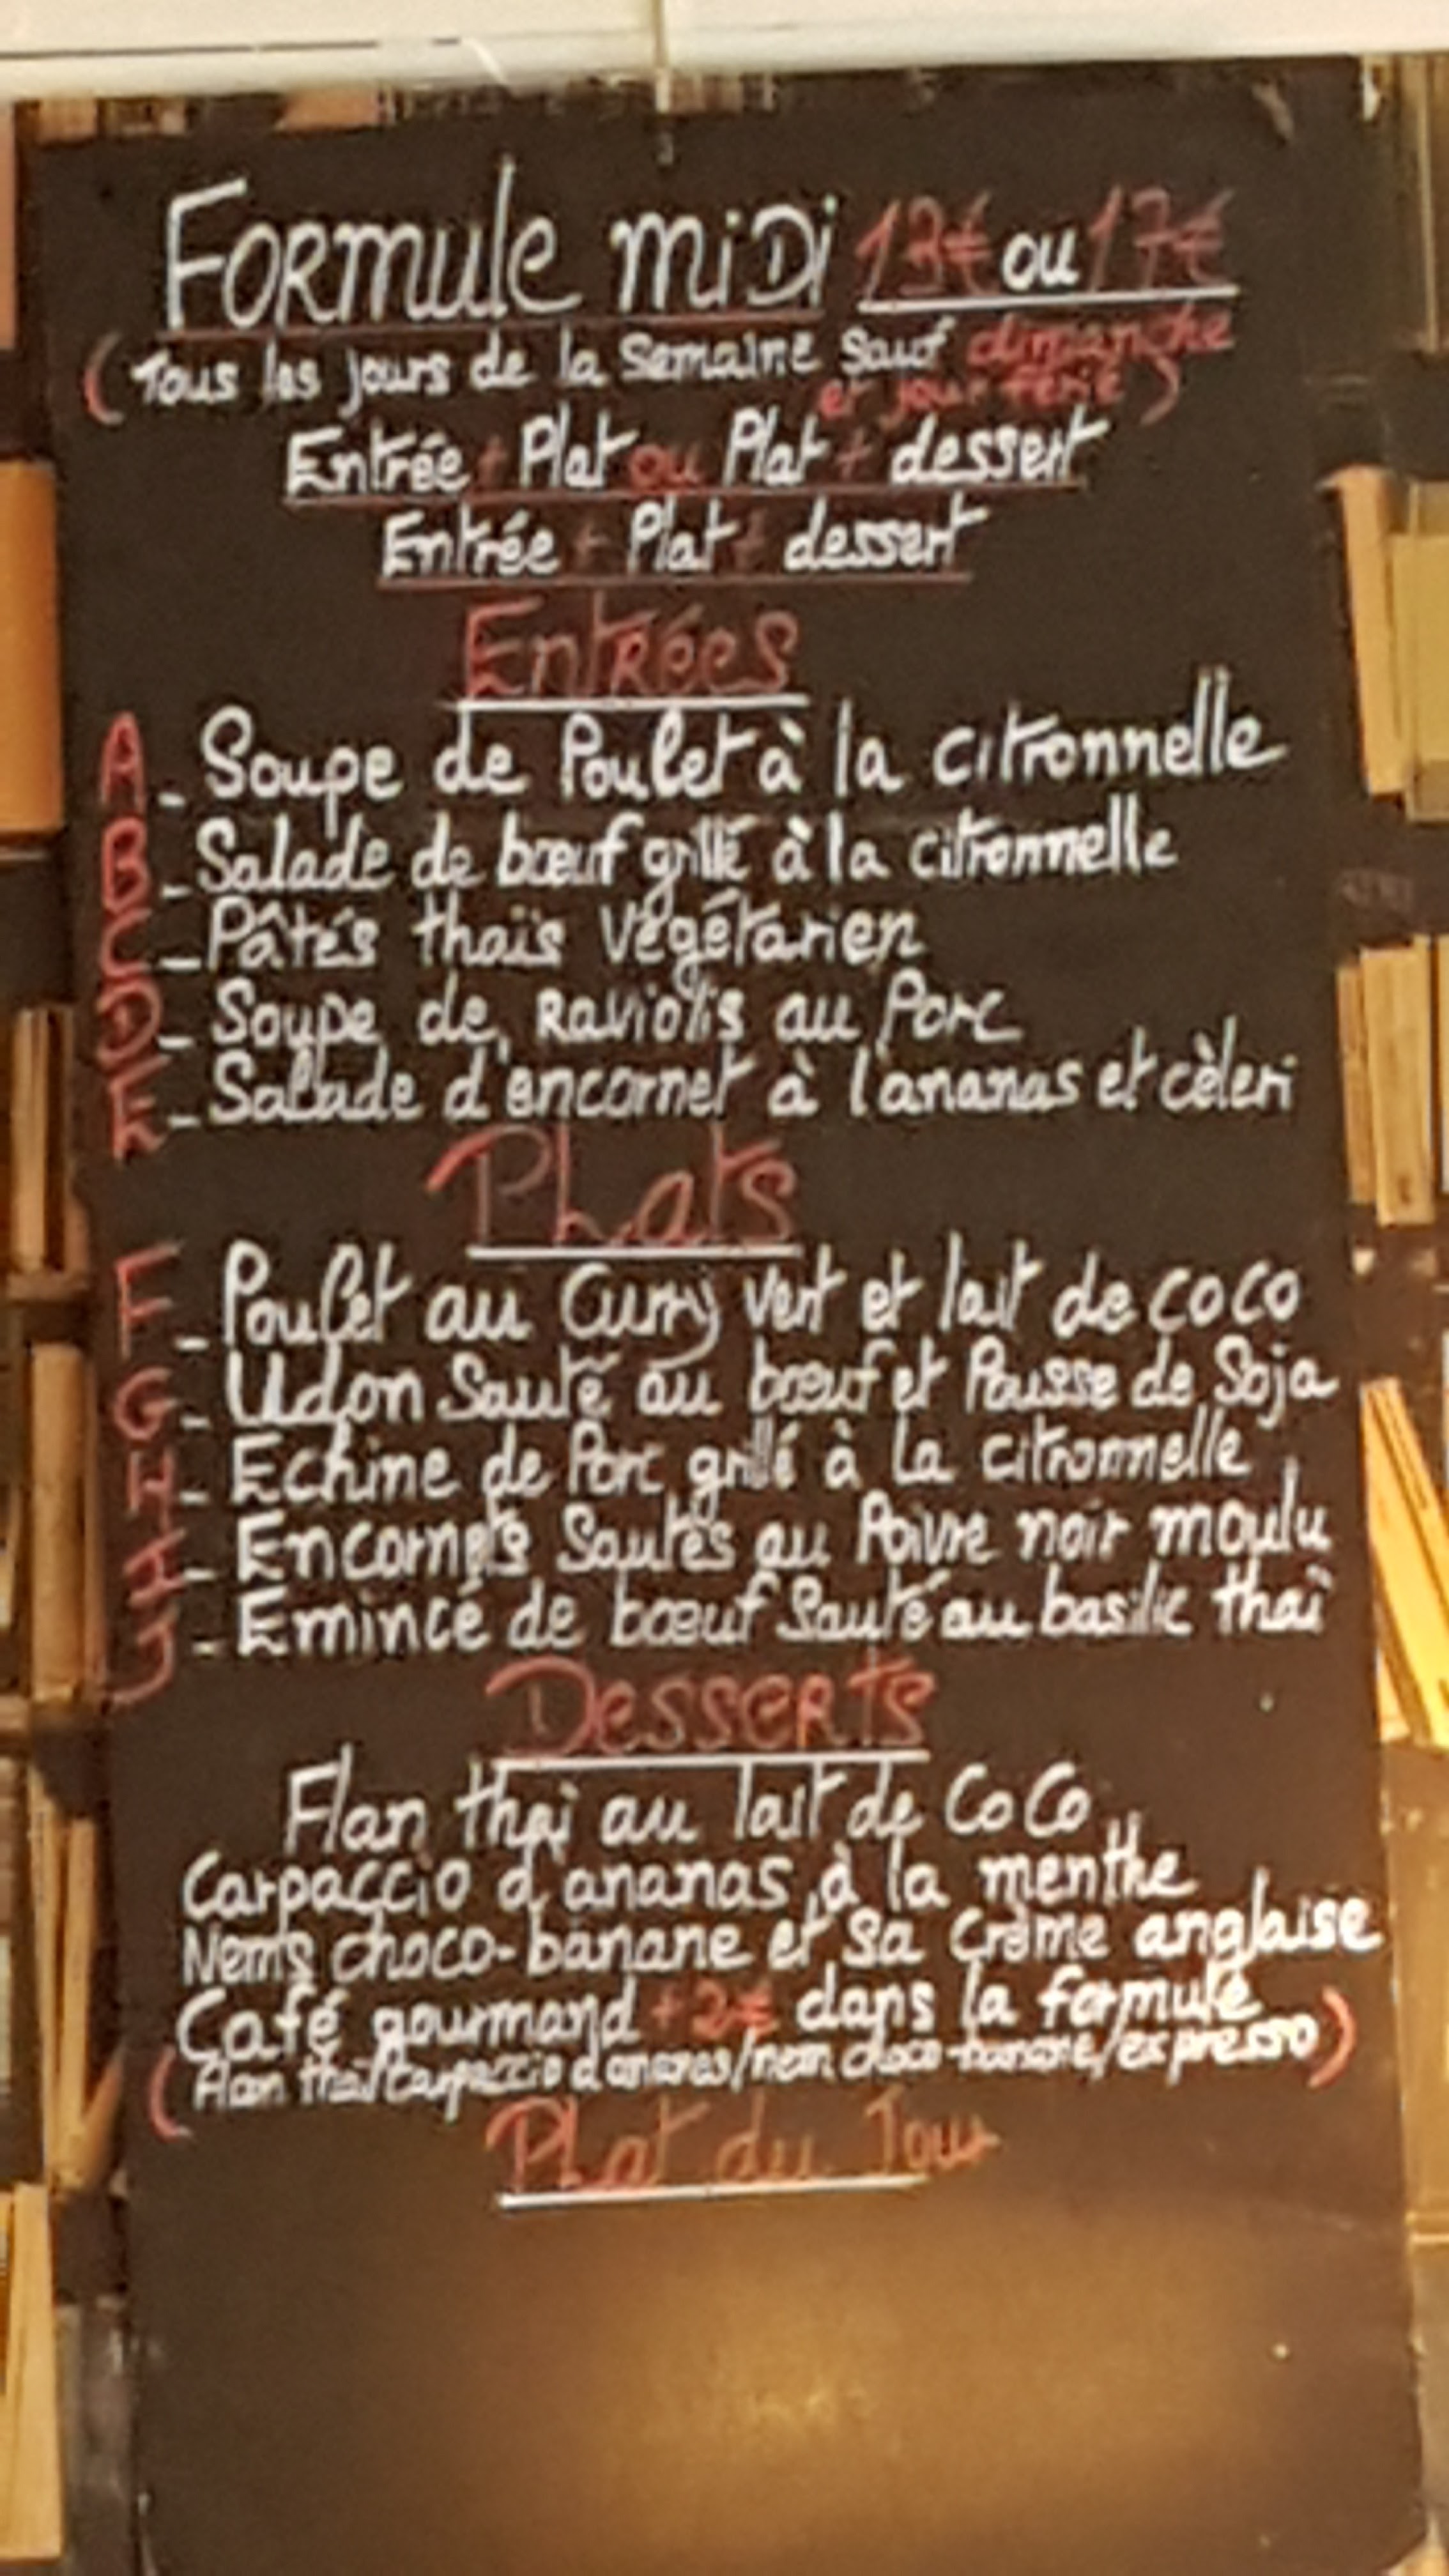 Formule midi 13€ ou 17€
(Tous les jours de la Semaine Sauf dimanche
et jour férié)
Entrée + Plat ou Plat + dessert
Entrée + Plat + dessert
Entrées
A - Soupe de Poulet à la citronnelle
B - Salade de bœuf grillé à la citronnelle
C - Pâtés thaïs Végétarien
D - Soupe de Raviolis au Porc
E - Salade d'encornet à l'ananas et cèleri
Phats
F - Poulet au Curry vert et lait de coco
G - Udon Sauté au bœuf et Pousse de Soja
H - Echine de Porc grillé à la citronnelle
I - Encornets Sautés au Poivre noir moulu
J - Emincé de bœuf Sauté au basilic thaï
Desserts
Flan thaï au lait de CoCo
Carpaccio d'ananas à la menthe
Nems choco-banane et Sa Crème anglaise
Café gourmand +2€ dans la formule
(flan thaï/Carpaccio d'ananas/nem choco-banane/expresso)
Phat du Jour